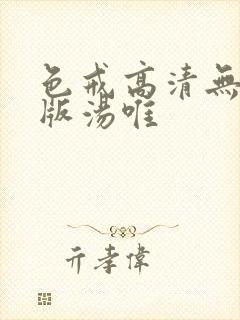 色戒高清無
版湯唯
亓孝偉